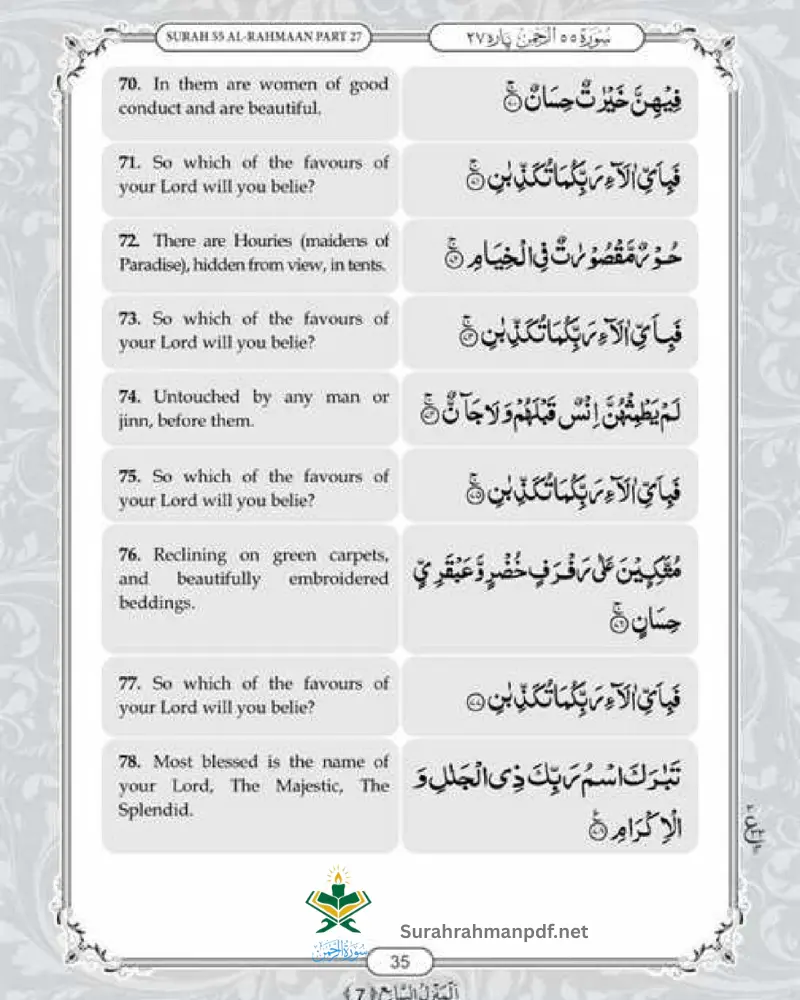 SURAH 55 AL-RAHMAAN PART 27
سُوْرَة ٥٥ اَلرَّحْمٰنُ پاره ٢٧
70. In them are women of good
conduct and are beautiful.
فِيْهِنَّ خَيْرٰتٌ حِسَانٌ ۚ ﴿٧٠﴾
71. So which of the favours of
your Lord will you belie?
فَبِاَيِّ اٰلَآءِ رَبِّكُمَا تُكَذِّبٰنِ ۚ ﴿٧١﴾
72. There are Houries (maidens of
Paradise), hidden from view, in tents.
حُوْرٌ مَّقْصُوْرٰتٌ فِى الْخِيَامِ ۚ ﴿٧٢﴾
73. So which of the favours of
your Lord will you belie?
فَبِاَيِّ اٰلَآءِ رَبِّكُمَا تُكَذِّبٰنِ ۚ ﴿٧٣﴾
74. Untouched by any man or
jinn, before them.
لَمْ يَطْمِثْهُنَّ اِنْسٌ قَبْلَهُمْ وَ لَا جَآنٌّ ۚ ﴿٧٤﴾
75. So which of the favours of
your Lord will you belie?
فَبِاَيِّ اٰلَآءِ رَبِّكُمَا تُكَذِّبٰنِ ۚ ﴿٧٥﴾
76. Reclining on green carpets,
and beautifully embroidered
beddings.
مُتَّكِـِٕيْنَ عَلٰى رَفْرَفٍ خُضْرٍ وَّ عَبْقَرِيٍّ
حِسَانٍ ۚ ﴿٧٦﴾
77. So which of the favours of
your Lord will you belie?
فَبِاَيِّ اٰلَآءِ رَبِّكُمَا تُكَذِّبٰنِ ﴿٧٧﴾
78. Most blessed is the name of
your Lord, The Majestic, The
Splendid.
تَبٰرَكَ اسْمُ رَبِّكَ ذِى الْجَلٰلِ وَ
الْاِكْرَامِ ﴿٧٨﴾
Surahrahmanpdf.net
سُوْرَةُ الرَّحْمٰن
35
اَلْمَنْزِلُ السَّابِع ﴿7﴾